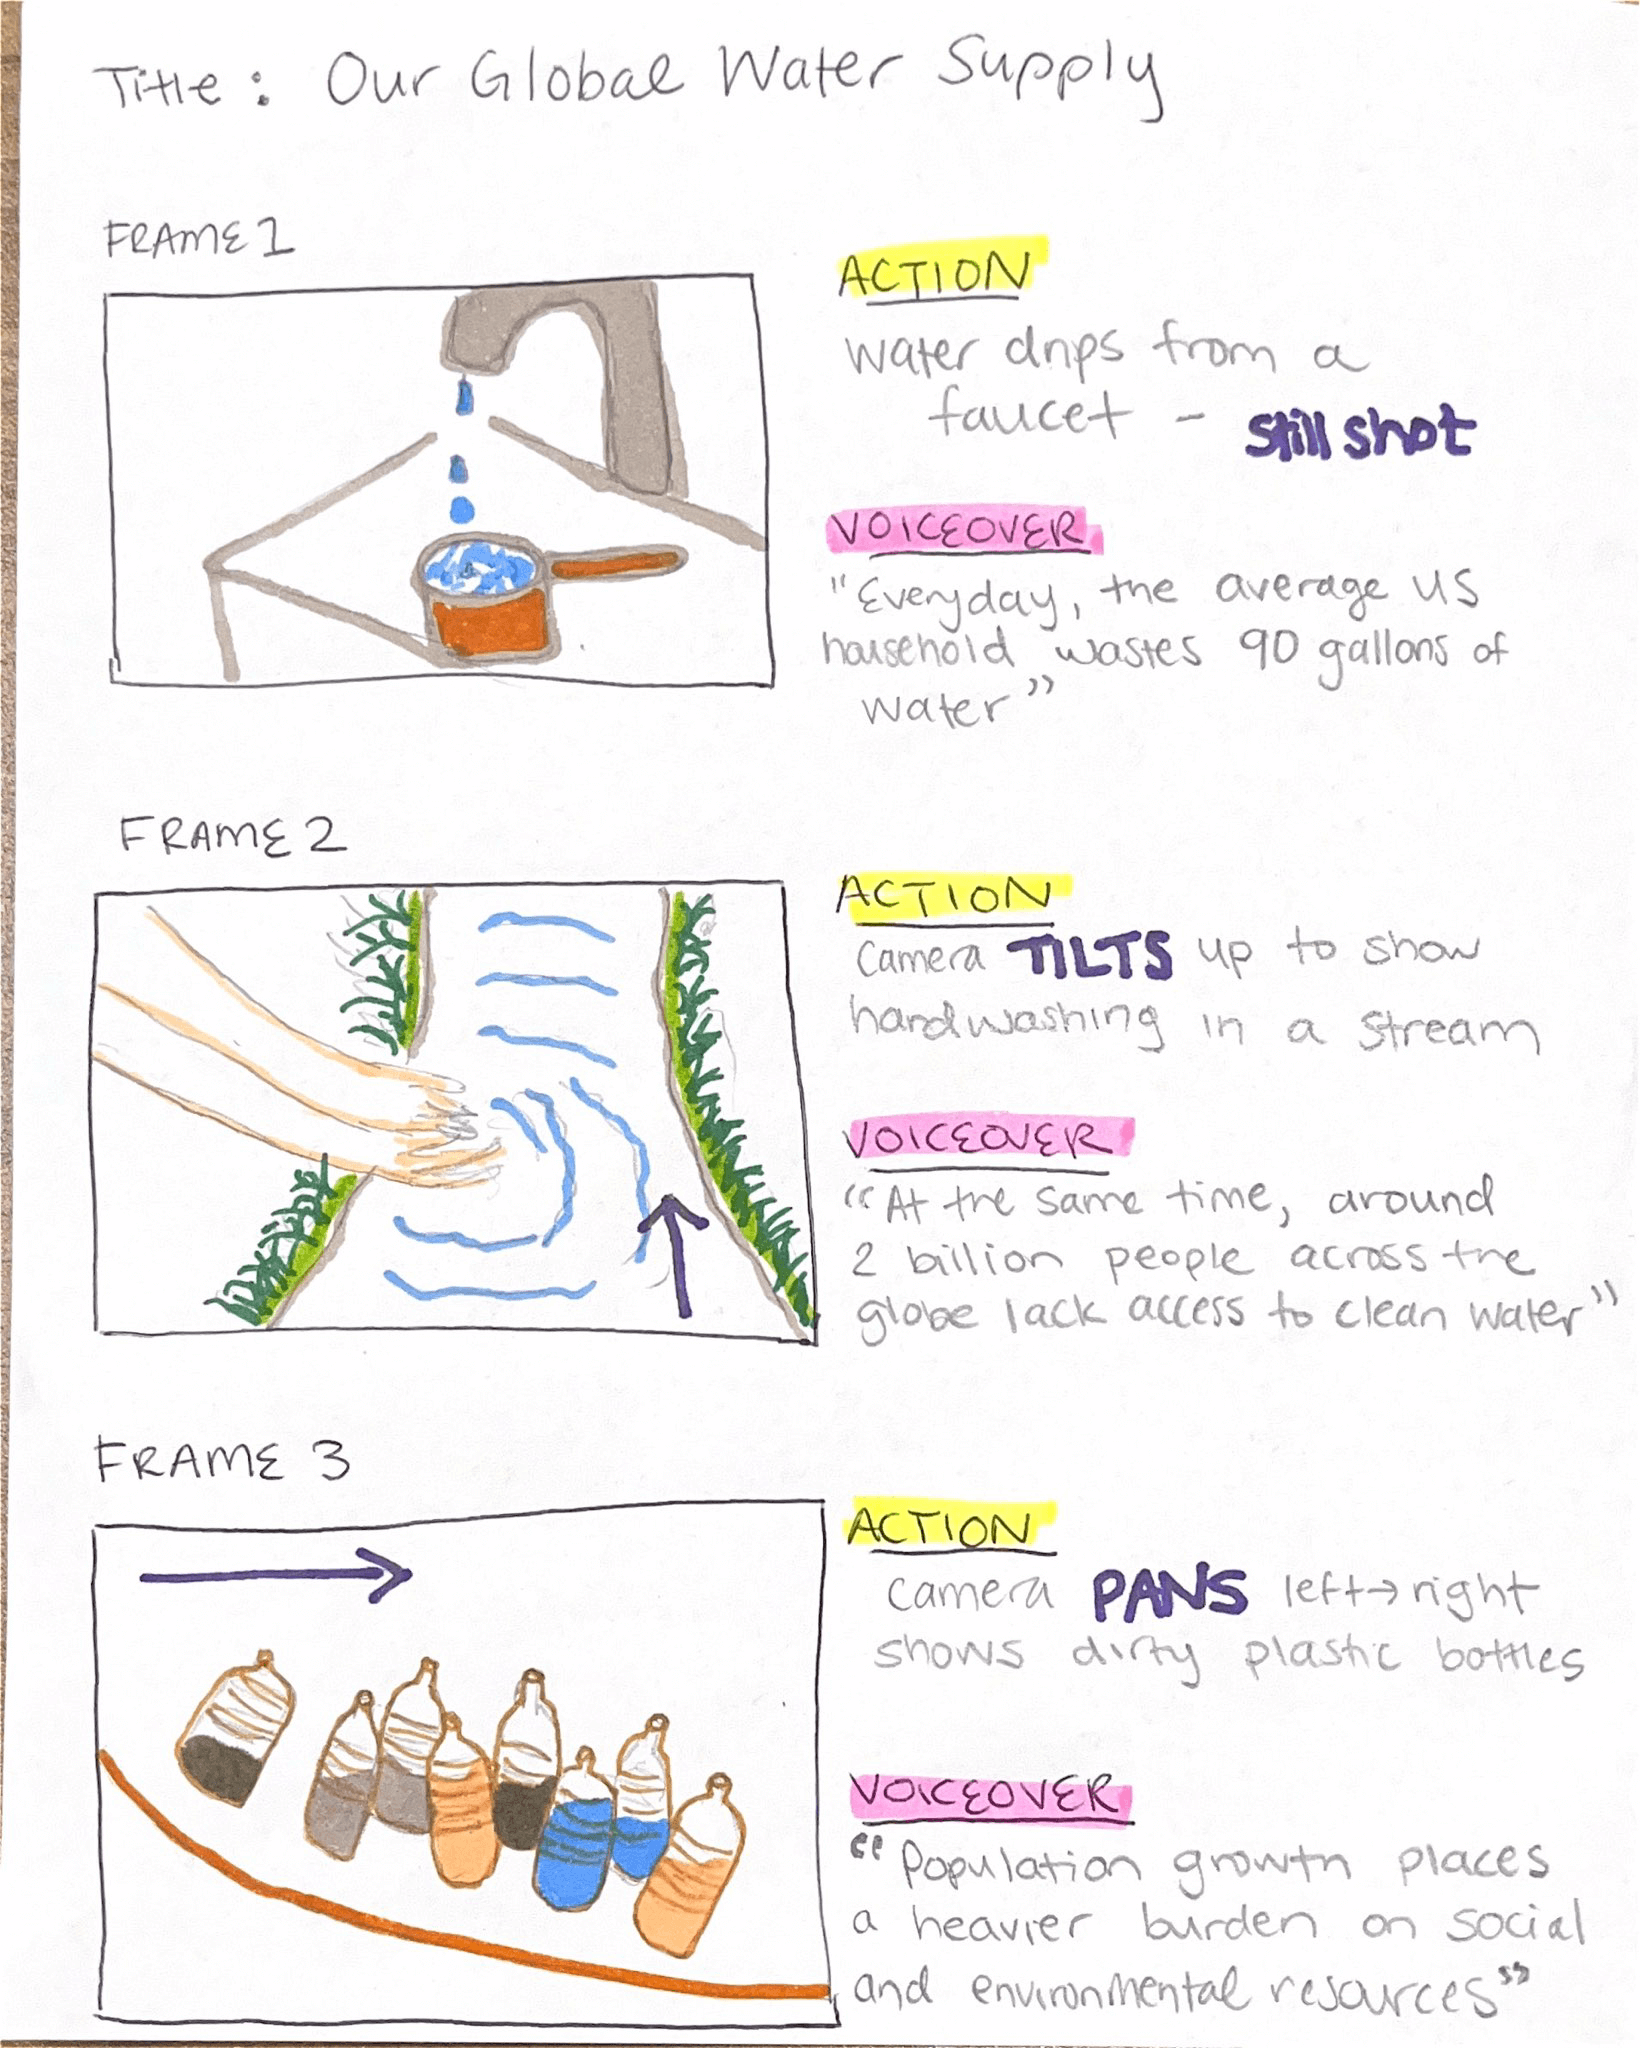 Title: Our Global Water Supply
FRAME 1
ACTION
Water drips from a
faucet - Still shot
VOICEOVER
"Everyday, the average US
household wastes 90 gallons of
water"
FRAME 2
ACTION
Camera TILTS up to show
handwashing in a stream
VOICEOVER
"At the same time, around
2 billion people across the
globe lack access to clean water"
FRAME 3
ACTION
Camera PANS left→right
shows dirty plastic bottles
VOICEOVER
"Population growth places
a heavier burden on social
and environmental resources"